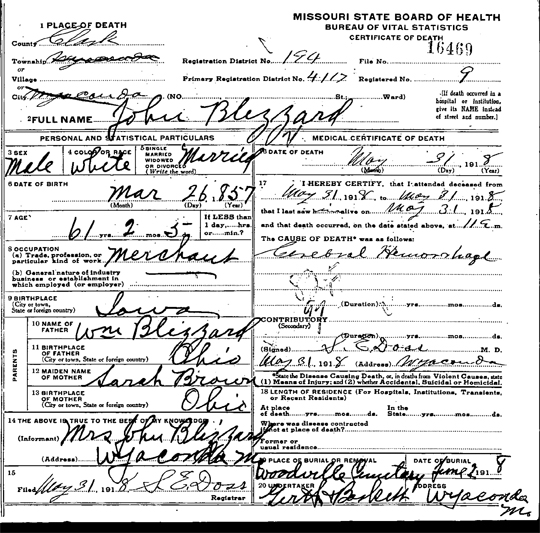 MISSOURI STATE BOARD OF HEALTH
BUREAU OF VITAL STATISTICS
CERTIFICATE OF DEATH
1 PLACE OF DEATH
County Clark
Township Wyaconda
or
Village
or
City Wyaconda (NO. St.; Ward)
Registration District No. 194
File No. 16469
Primary Registration District No. 4117
Registered No. 9
[If death occurred in a hospital or institution, give its NAME instead of street and number.]
2 FULL NAME John Blezzard
PERSONAL AND STATISTICAL PARTICULARS
3 SEX Male
4 COLOR OR RACE White
5 SINGLE MARRIED WIDOWED OR DIVORCED (Write the word) Married
6 DATE OF BIRTH Mar 26, 1857
(Month) (Day) (Year)
7 AGE 61 yrs. 2 mos. 5 ds.
If LESS than 1 day, hrs. or min.?
8 OCCUPATION
(a) Trade, profession, or particular kind of work Merchant
(b) General nature of industry business or establishment in which employed (or employer)
9 BIRTHPLACE
(City or town, State or foreign country) Iowa
PARENTS
10 NAME OF FATHER Wm Blezzard
11 BIRTHPLACE OF FATHER
(City or town, State or foreign country) Ohio
12 MAIDEN NAME OF MOTHER Sarah Brown
13 BIRTHPLACE OF MOTHER
(City or town, State or foreign country) Ohio
14 THE ABOVE IS TRUE TO THE BEST OF MY KNOWLEDGE
(Informant) Mrs John Blezzard
(Address) Wyaconda Mo
15
Filed May 31, 1918 S. E. Doss
Registrar
MEDICAL CERTIFICATE OF DEATH
16 DATE OF DEATH May 31 1918
(Month) (Day) (Year)
17 I HEREBY CERTIFY, that I attended deceased from
May 31 1918 to May 31 1918
that I last saw alive on May 31 1918
and that death occurred, on the date stated, above, at 11 m.
The CAUSE OF DEATH* was as follows:
Cerebral Hemorrhage
(Duration) yrs. mos. ds.
CONTRIBUTORY
(Secondary)
(Duration) yrs. mos. ds.
(Signed) S. E. Doss M. D.
May 31, 1918 (Address) Wyaconda
*State the Disease Causing Death, or, in deaths from Violent Causes, state
(1) Means of Injury; and (2) whether Accidental, Suicidal or Homicidal.
18 LENGTH OF RESIDENCE (For Hospitals, Institutions, Transients, or Recent Residents)
At place of death yrs. mos. ds. In the State yrs. mos. ds.
Where was disease contracted
if not at place of death?
Former or
usual residence
19 PLACE OF BURIAL OR REMOVAL DATE OF BURIAL
Woodville Cemitary June 2 1918
20 UNDERTAKER ADDRESS
Baskett Wyaconda
Mo.